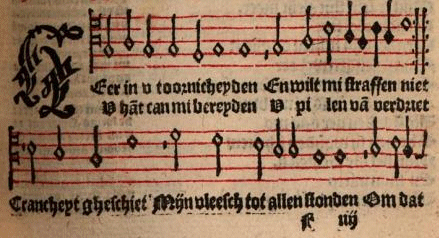 HEer in v toornicheyden En wilt mi straffen niet
V hāt can mi bereyden V pi len vā verdriet
Cranchept gheschiet Mijn vleesch tot allen stonden Om dat
F iiij